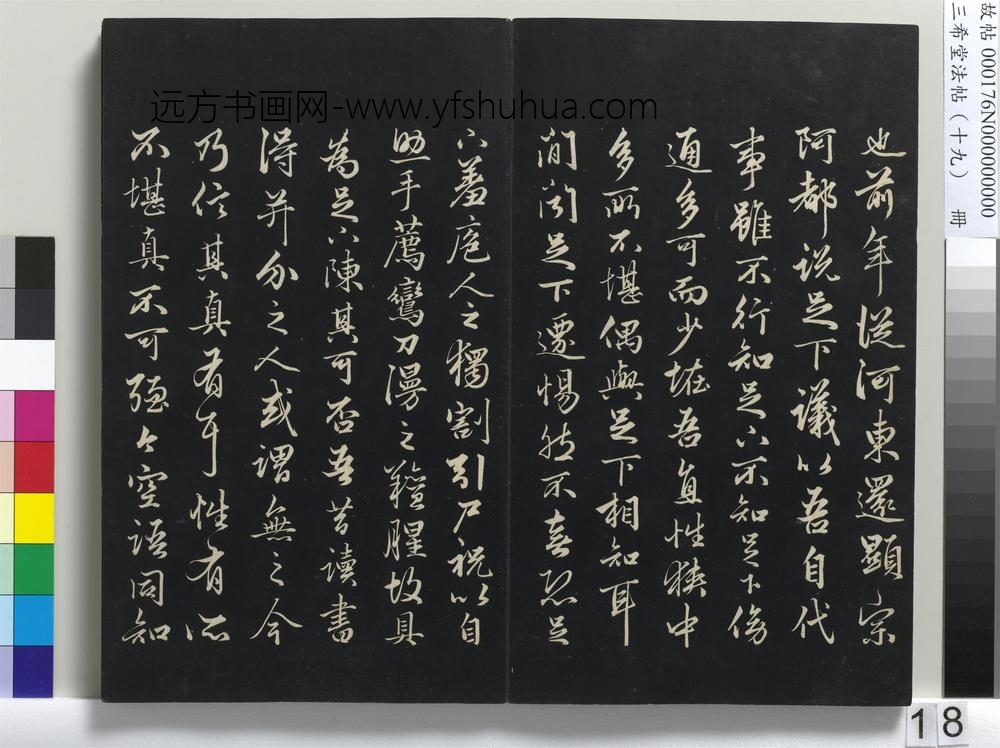 也前年從河東還顯宗
阿都說足下議以吾自代
事雖不行知足下不知足下傍
通多可而少怪吾直性狹中
多所不堪偶與足下相知耳
間聞足下遷惕然不喜恐足
下羞庖人之獨割引尸祝以自
助手薦鸞刀漫之羶腥故具
為足下陳其可否吾昔讀書
得并介之人或謂無之今
乃信其真有耳性有所
不堪真不可強今空語同知
远方书画网-www.yfshuhua.com
故帖 000176N000000000
三希堂法帖（十九） 册
18